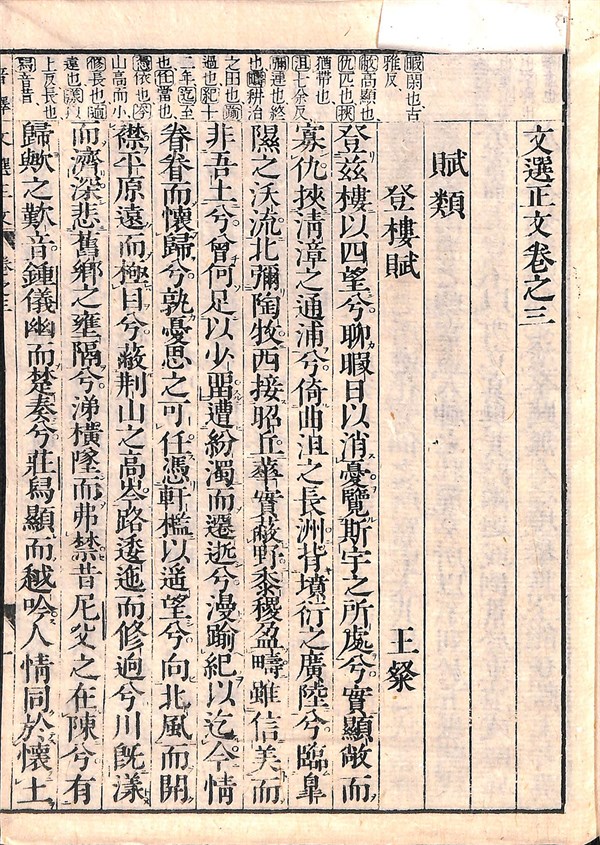 文選正文卷之三
賦類
登樓賦 王粲
暇閑也古
雅反
敞高顯也
仇匹也挾
猶帶也
沮七余反
彌連也終
也疇耕治
之田也踰
過也紀十
二年迄至
也任當也
憑依也岑
山高而小
修長也迥
遠也漾以
上反長也
舄音昔
登茲樓以四望兮聊暇日以消憂覽斯宇之所處兮實顯敞而
寡仇挾清漳之通浦兮倚曲沮之長洲背墳衍之廣陸兮臨皐
隰之沃流北彌陶牧西接昭丘華實蔽野黍稷盈疇雖信美而
非吾土兮曾何足以少畱遭紛濁而遷逝兮漫踰紀以迄今情
眷眷而懷歸兮孰憂思之可任憑軒檻以遥望兮向北風而開
襟平原遠而極目兮蔽荆山之高岑路逶迤而修迥兮川旣漾
而濟深悲舊鄉之壅隔兮涕橫墜而弗禁昔尼父之在陳兮有
歸歟之歎音鍾儀幽而楚奏兮莊舄顯而越吟人情同於懷土
文選正文 卷之三 一